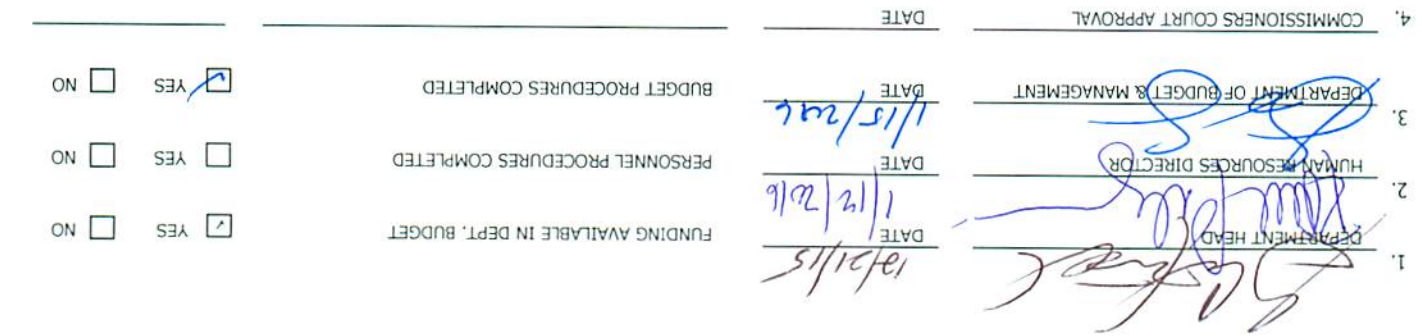 1.
DEPARTMENT HEAD 12/21/15 DATE FUNDING AVAILABLE IN DEPT. BUDGET YES NO
2. 1/12/2016
HUMAN RESOURCES DIRECTOR DATE PERSONNEL PROCEDURES COMPLETED YES NO
3. 1/15/2016
DEPARTMENT OF BUDGET & MANAGEMENT DATE BUDGET PROCEDURES COMPLETED YES NO
4. COMMISSIONERS COURT APPROVAL DATE